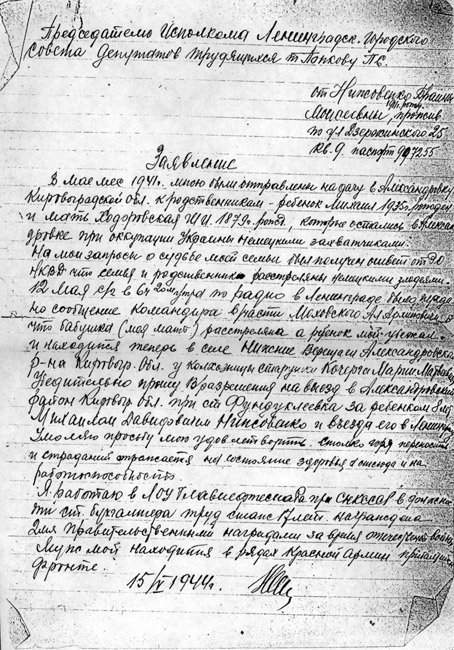 Председателю Исполкома Ленинградск. Городского
Совета Депутатов Трудящихся т Попкову П.С.
от Нипсовенко Браины
Моисеевны, 1911 г. рожд, прожив.
по ул Дзержинского 25
кв. 9. паспорт
Заявление
В мае мес 1941 г. мною были отправлены на дачу в Александровку
Кировоградской обл. к родственникам - ребенок Михаил 1935 г. рожден
и мать Ходорковская 1879 г. рожд, которые остались в Алексан
дровке при оккупации Украины немецкими захватчиками.
На мои запросы о судьбе моей семьи был получен ответ от
НКВД что семья и родственники расстреляны немецкими злодеями.
12 мая с/г в 6 ч 20 мин утра по радио в Ленинграде было переда
но сообщение Командира в/части
что бабушка (моя мать) расстреляна а ребенок мой убежал
и находится теперь в селе Нижние Верещаги Александровск
р-на Кировогр. Обл. у колхозницы старушки Марии Матвеевны
Убедительно прошу Вразрешения на выезд в Александровский
район Кировогр обл. при ст Фундуклеевка за ребенком
Михаилом Давидовичем Нипсовенко и въезда его в Ленинград
Умоляю просьбу мою удовлетворить столько горя переносить
и страданий отражается на состояние здоровья отсюда и на
работоспособность.
Я работаю в ЛОУ Главнефтеснаба при СНК СССР в должнос
ти ст бухгалтера труд стаж 17 лет награждена
2мя Правительственными наградами за время отечествен войны
Муж мой находится в рядах Красной Армии
фронте.
15/V 1944 г.